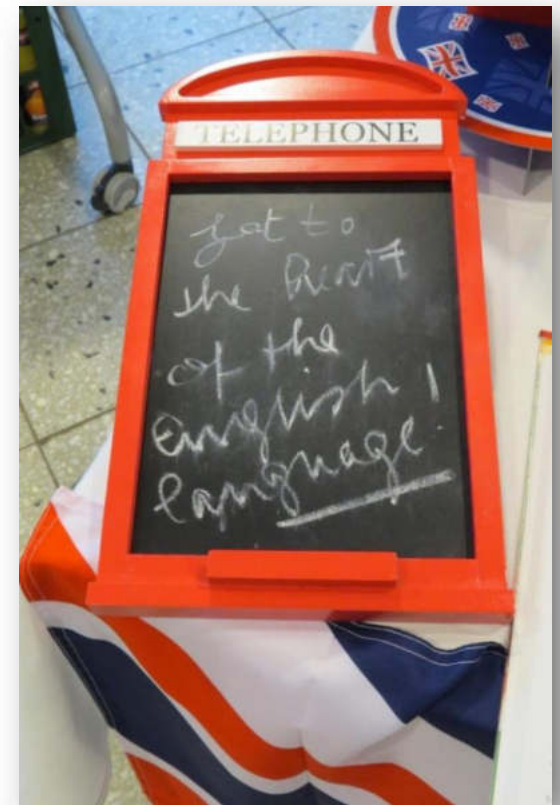 TELEPHONE
Get to
the heart
of the
english !
language.